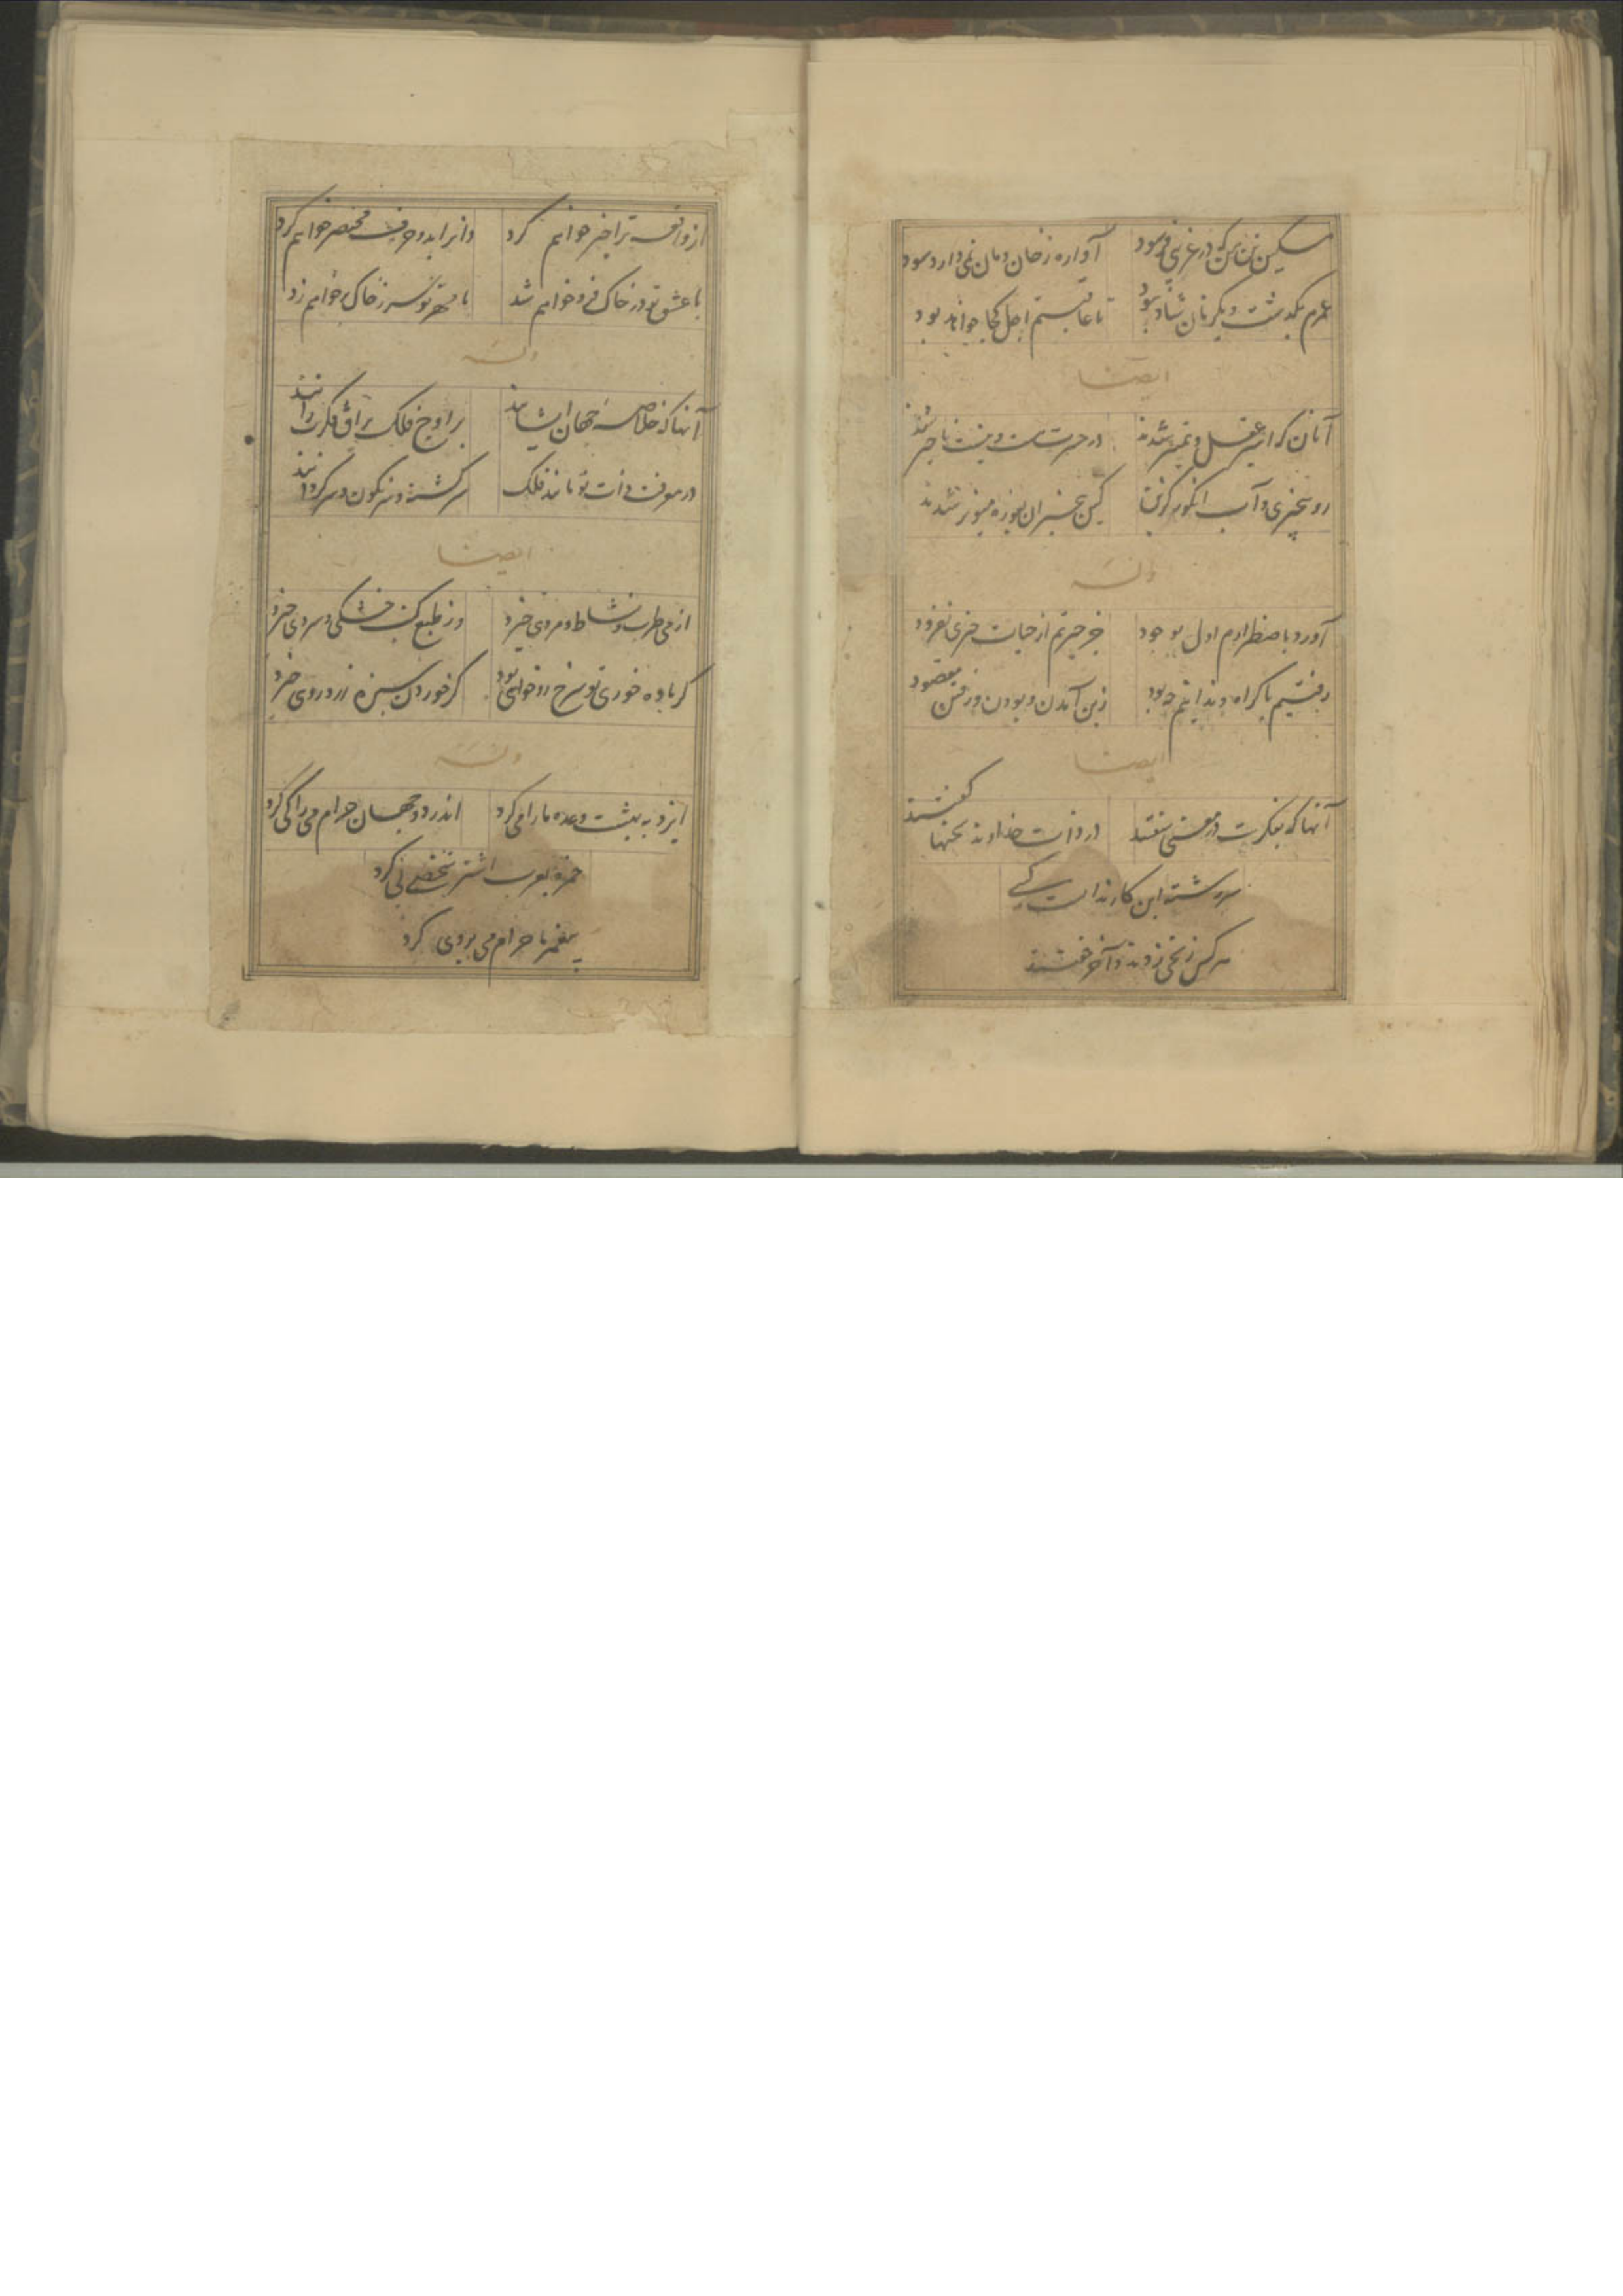 مسکین تن من که در غریبی فرسود آواره ز خان و مان نمی‌دارد سود
عمرم بگذشت و یکزمان شاد نبود تا عاقبتم اجل کجا خواند بود
ایضا
آنان که اسیر عقل و تمیز شدند در حسرت هست و نیست ناچیز شدند
رو بیخبری و آب انگور گزین کین بیخبران بغوره میویز شدند
وله
آورد باضطرارم اول بوجود جز حیرتم از حیات چیزی نفزود
رفتیم باکراه و ندانیم چه بود زین آمدن و بودن و رفتن مقصود
ایضا
آنها که بفکرت در معنی سفتند در ذات خداوند سخنها گفتند
سررشته این کار ندانست کسی
هرکس زنخی زدند و آخر خفتند
از واقعه ترا خبر خواهم کرد وانرا بدو حرف مختصر خواهم کرد
با عشق تو در خاک فرو خواهم شد با مهر تو سر ز خاک بر خواهم زد
وله
آنها که خلاصه جهان ایشانند بر اوج فلک براق فکرت رانند
در معرفت ذات تو مانند فلک سرگشته و سرنگون و سرگردانند
ایضا
از می طرب و نشاط و مردی خیزد وز طبع کتب خشکی و سردی خیزد
گر باده خوری تو سرخ رو خواهی بود کز خوردن سبزه زرد رویی خیزد
وله
ایزد به بهشت وعده ما را می کرد اندر دو جهان حرام می را کی کرد
حمزه بعرب اشتر شخصی پی کرد
پیغمبر ما حرام می بر وی کرد